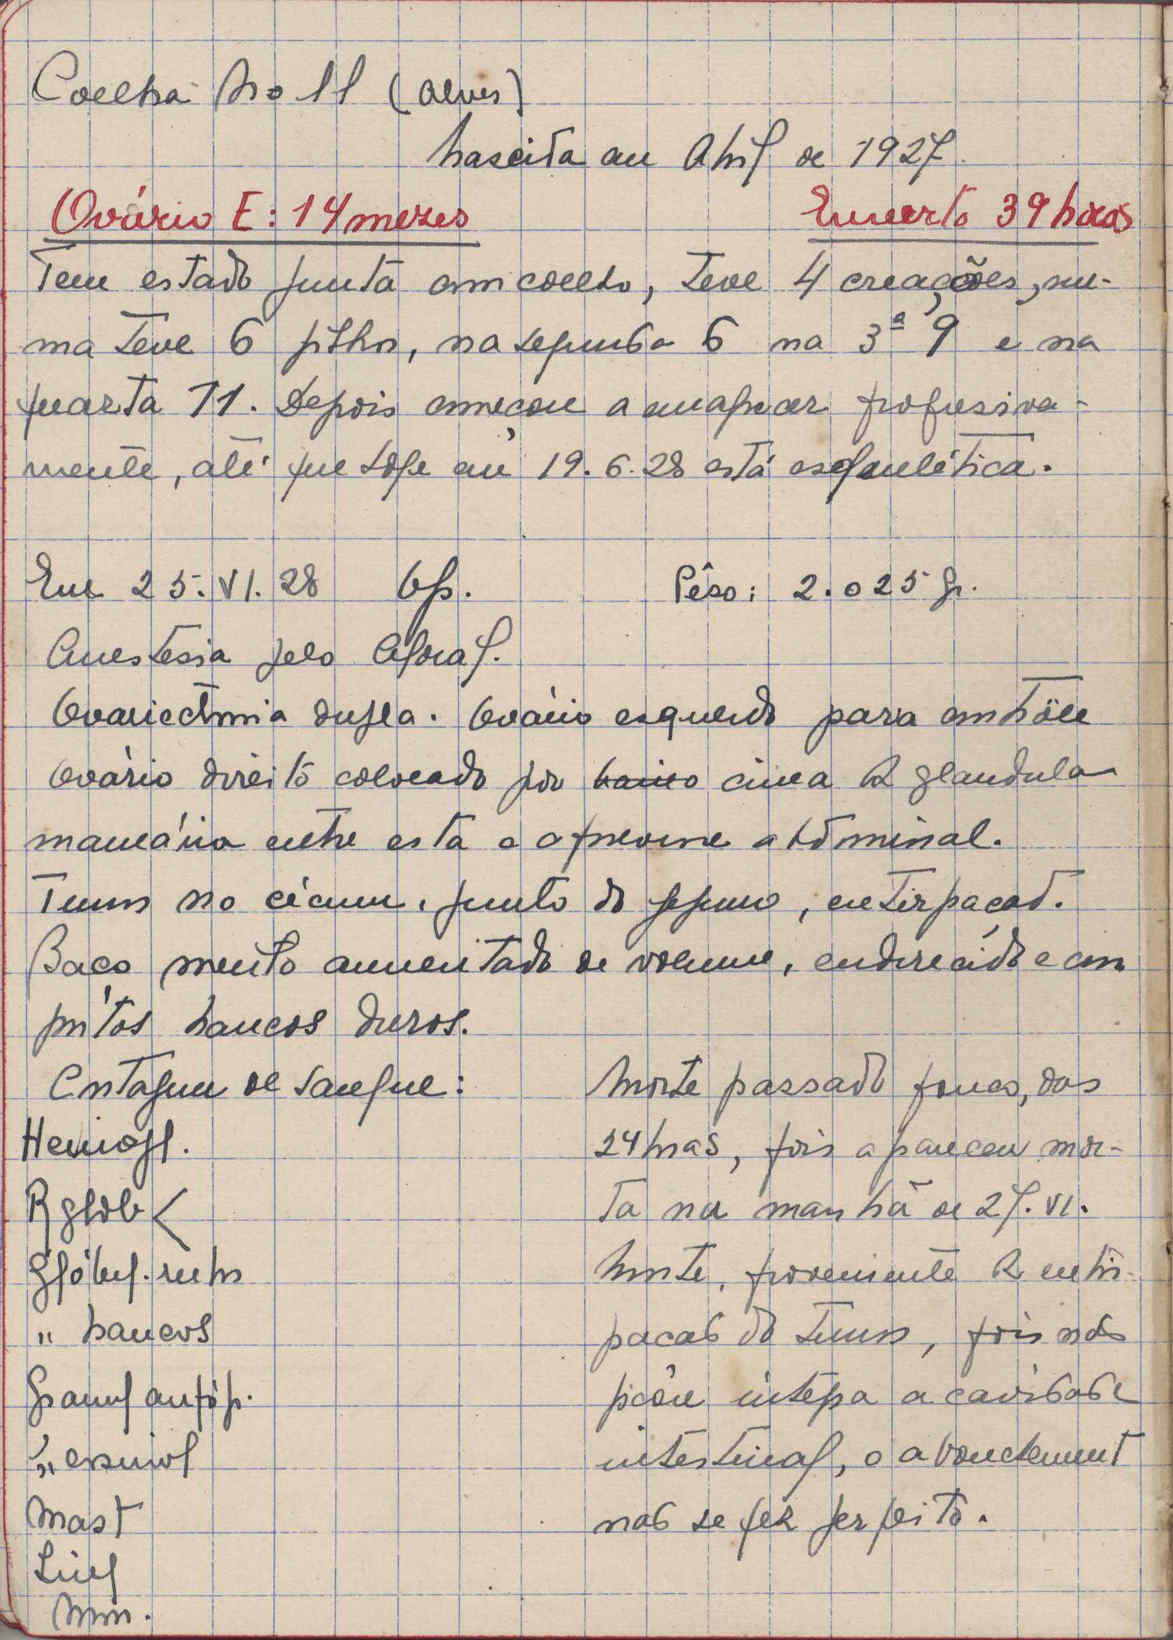 Coelha No 11 (Alves)
Nascida em Abril de 1927.
Ovário E: 14 mezes
Enxerto 39 horas
Tem estado junta com coelho, teve 4 creações, nu-
ma teve 6 filhos, na segunda 6 na 3ª 9 e na
quarta 11. Depois começou a emagrecer progressiva-
mente, até que hoje em 19.6.28 está esquelética.
Em 25.VI.28 Op. Pêso: 2.025 gr.
Anestesia pelo Cloral.
Ovariectomia dupla. Ovário esquerdo para contrôle
Ovário direito colocado por baixo cima da glandula
mamária entre esta e a parede abdominal.
Tumor no cécum, junto do jejuno, extirpaçad.
Baço muito aumentado de volume, endurecido e com
pontos brancos duros.
Contagem de sangue:
Hemogl.
R glob <
Glóbul. rubros
" brancos
Granul neutróf.
" eosinof
Mast
Linf
Mon.
Morte passado poucas, das
24 horas, pois apareceu mor-
ta na manhã de 27.VI.
Morte, proveniente da extir-
pacao do tumor, pois não
ficou integra a cavidade
intestinal, o abouchement
nao se fez perfeito.